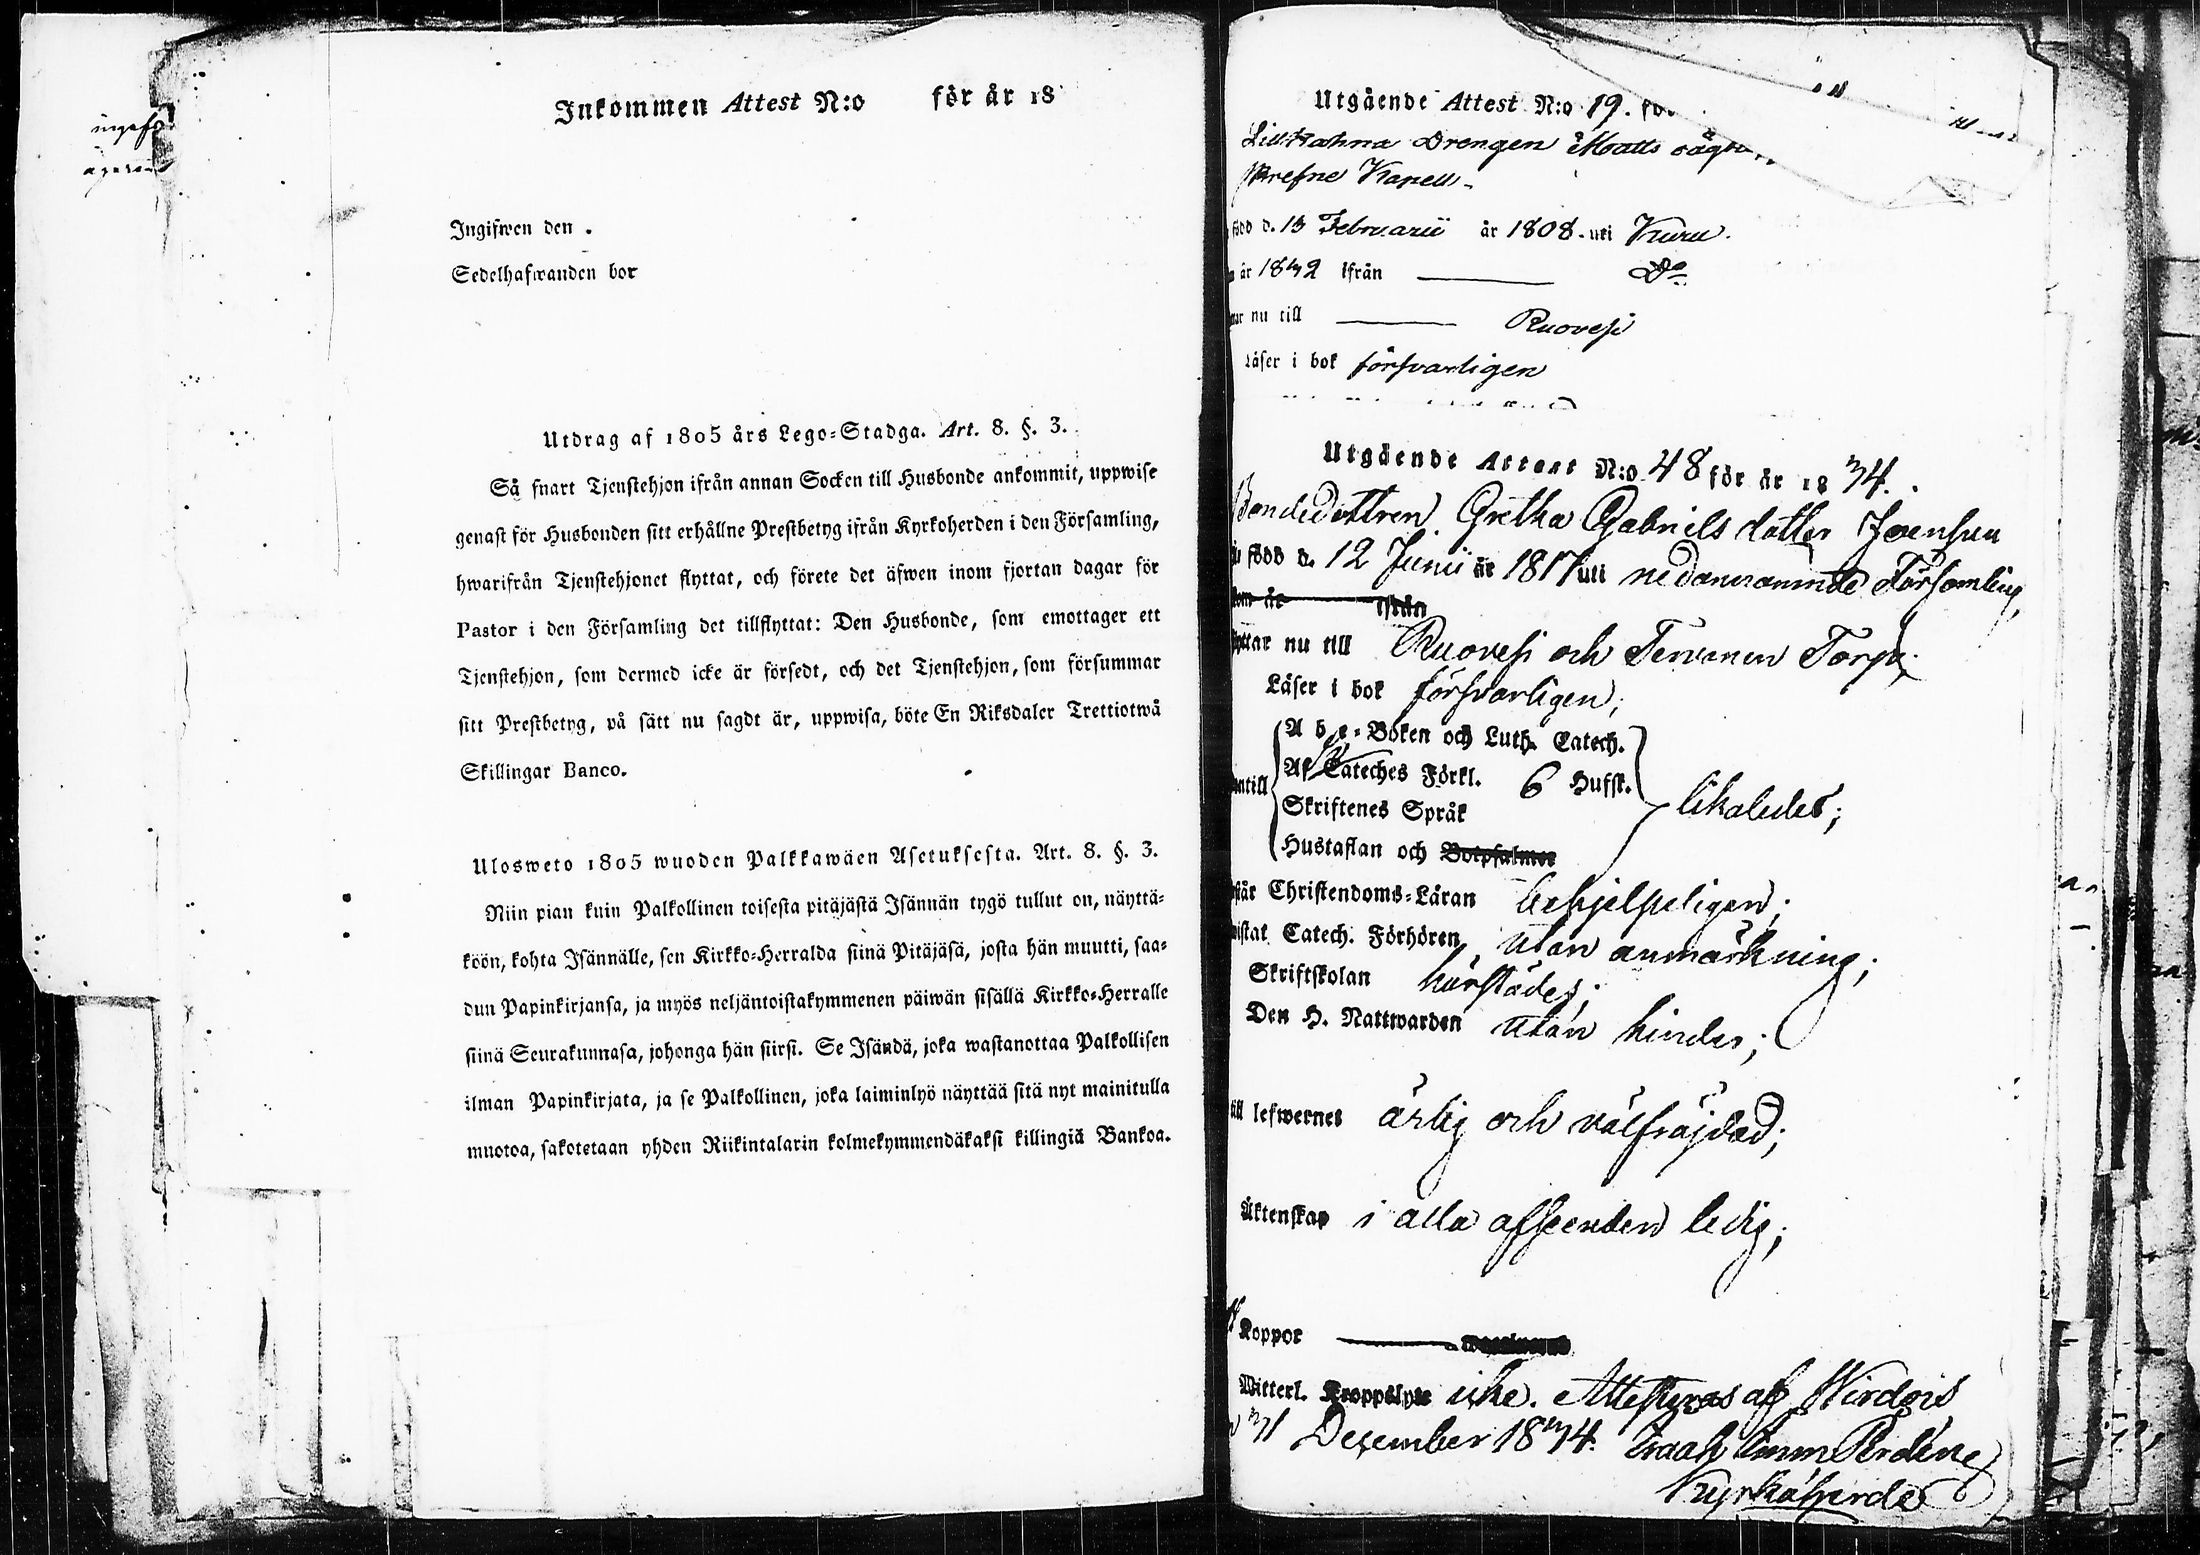 Inkommen Attest N:o för år 18
Ingifwen den .
Sedelhafwanden bor
Utdrag af 1805 års Lego=Stadga. Art. 8. §. 3.
Så snart Tjenstehjon ifrån annan Socken till Husbonde ankommit, uppwise
genast för Husbonden sitt erhållne Prestbetyg ifrån Kyrkoherden i den Församling,
hwarifrån Tjenstehjonet flyttat, och förete det äfwen inom fjortan dagar för
Pastor i den Församling det tillflyttat: Den Husbonde, som emottager ett
Tjenstehjon, som dermed icke är försedt, och det Tjenstehjon, som försummar
sitt Prestbetyg, på sätt nu sagdt är, uppwisa, böte En Riksdaler Trettiotwå
Skillingar Banco.
Ulosweto 1805 wuoden Palkkawäen Asetuksesta. Art. 8. §. 3.
Niin pian kuin Palkollinen toisesta pitäjästä Isännän tygö tullut on, näyttä=
köön, kohta Isännälle, sen Kirkko=Herralda siinä Pitäjäsä, josta hän muutti, saa=
dun Papinkirjansa, ja myös neljäntoistakymmenen päiwän sisällä Kirkko=Herralle
siinä Seurakunnasa, johonga hän siirsi. Se Isändä, joka wastanottaa Palkollisen
ilman Papinkirjata, ja se Palkollinen, joka laiminlyö näyttää sitä nyt mainitulla
muotoa, sakotetaan yhden Riikintalarin kolmekymmendäkaksi killingiä Bankoa.
Utgående Attest N:o 19. för
Drengen Matts
född d. 13 Februarii år 1808. uti Kuru.
år 1832 ifrån Do
nu till Ruovesi
Läser i bok försvarligen
Utgående Attest N:o 48 för år 1834.
Bondedottren Gretha Gabriels dotter
född d. 12 Junii år 1817 uti nedannämnde Församling,
kom år ifrån
flyttar nu till Ruovesi och Tervanen Torp;
Läser i bok försvarligen;
A b c=Boken och Luth. Catech.
Af Cateches Förkl. 6 Hufst.
Skriftenes Språk
likaledes;
Hustaflan och Botpsalmer
Christendoms=Läran behjelpeligen;
Catech. Förhören utan anmärkning;
Skriftskolan härstädes;
Den H. Nattwarden utan hinder;
till lefwernet ärlig och välfräjdad;
Äktenskap i alla afseenden ledig;
Koppor
Witterl. Kroppslyte icke. Attesteras af Wirdois
31 December 1834. Isaak Emm Perdén
Kyrkoherde